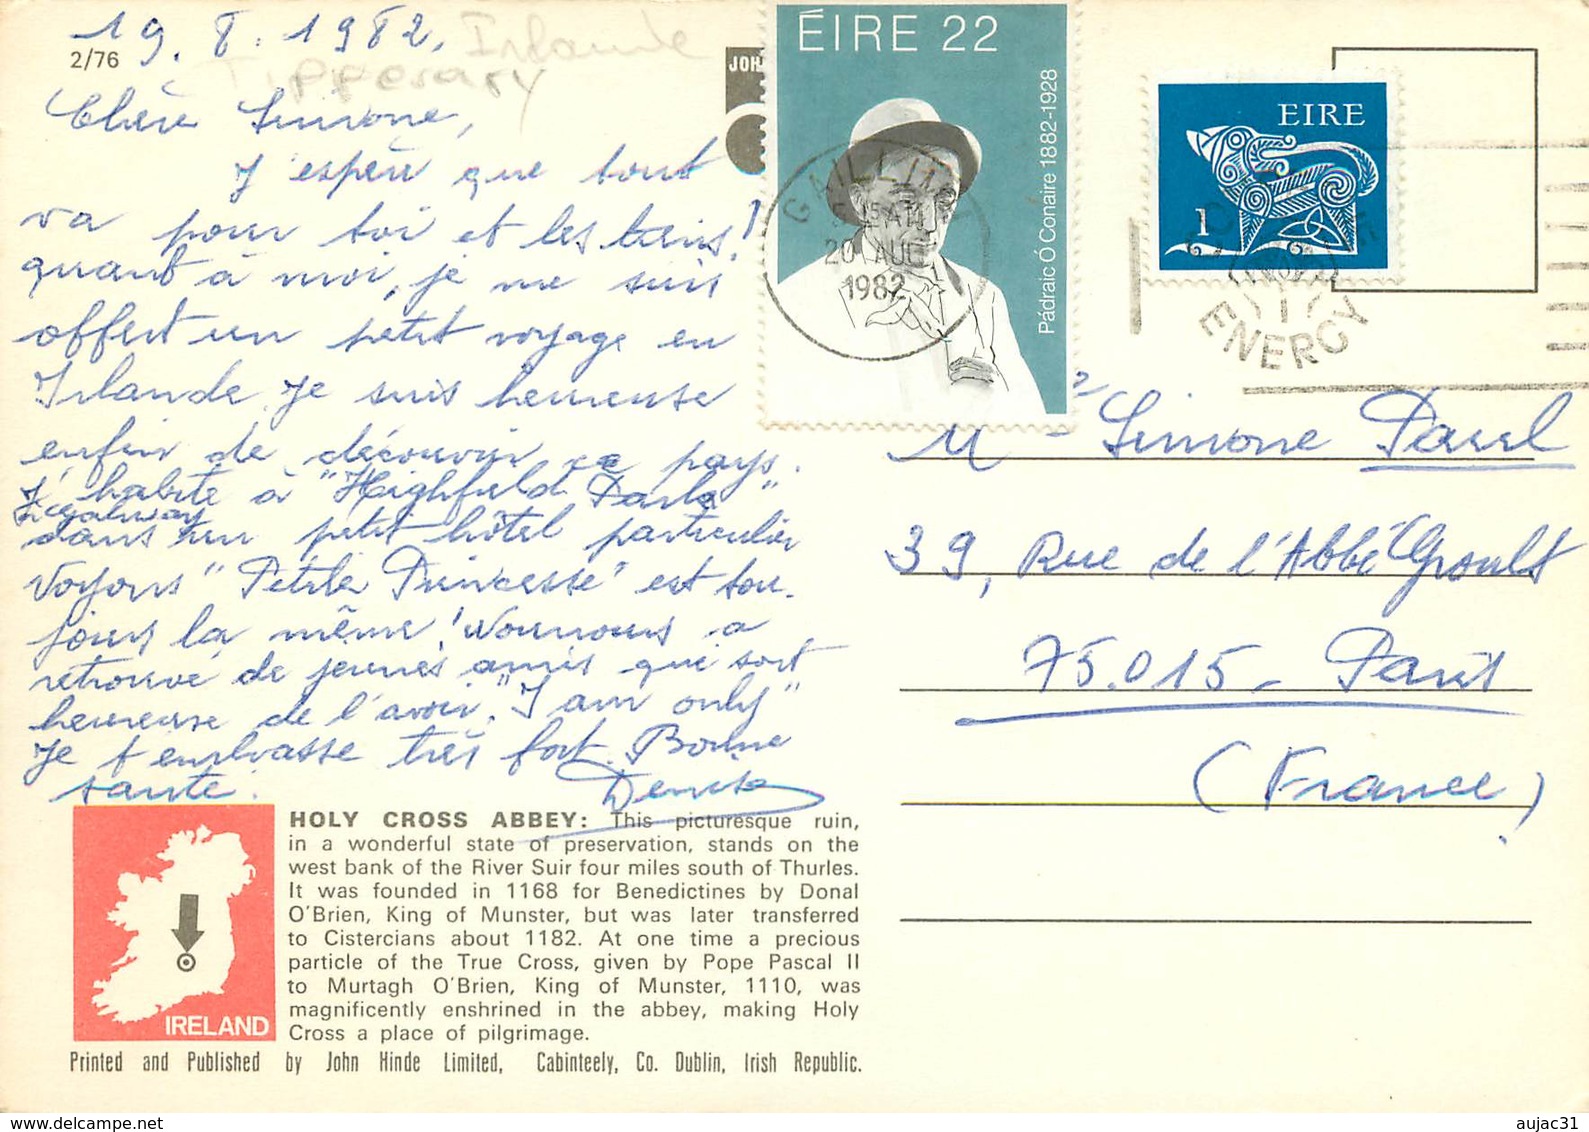 19.8.1982.
Irlande
2/76
Tipperary
Chère Simone,
J'espère que tout
va pour toi et les tiens!
quant à moi, je me suis
offert un petit voyage en
Irlande. Je suis heureuse
enfin de découvrir ce pays.
J'habite à "Highfield Park"
Galway
dans un petit hôtel particulier
Voyons "Petite Princesse" est tou-
jours la même!
a
retrouvé de jeunes amis qui sont
heureuse de l'avoir. "I am only"
Je t'embrasse très fort. Bonne
santé.
Denise
HOLY CROSS ABBEY: This picturesque ruin,
in a wonderful state of preservation, stands on the
west bank of the River Suir four miles south of Thurles.
It was founded in 1168 for Benedictines by Donal
O'Brien, King of Munster, but was later transferred
to Cistercians about 1182. At one time a precious
particle of the True Cross, given by Pope Pascal II
to Murtagh O'Brien, King of Munster, 1110, was
magnificently enshrined in the abbey, making Holy
Cross a place of pilgrimage.
IRELAND
Printed and Published by John Hinde Limited, Cabinteely, Co. Dublin, Irish Republic.
JOH
ÉIRE 22
Pádraic Ó Conaire 1882-1928
GAILLIMH
20 AUG
1982
EIRE
1
ENERGY
Mme Simone
39, Rue de l'Abbé Groult
75.015 - Paris
(France)
aujac31